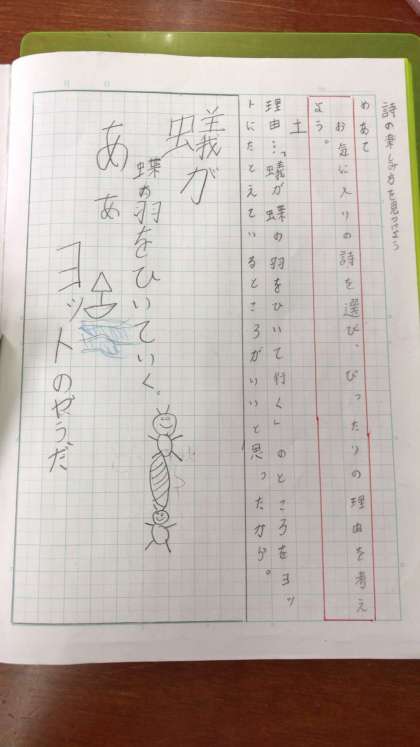 詩の楽しみ方を見つけよう
めあて
お気に入りの詩を選び、ぴったりの理由を考え
よう。
土
理由…「蟻が蝶の羽をひいて行く」のところをヨッ
トにたとえているところがいいと思ったから。
蟻が
蝶の羽をひいていく。
ああ
ヨットのやうだ